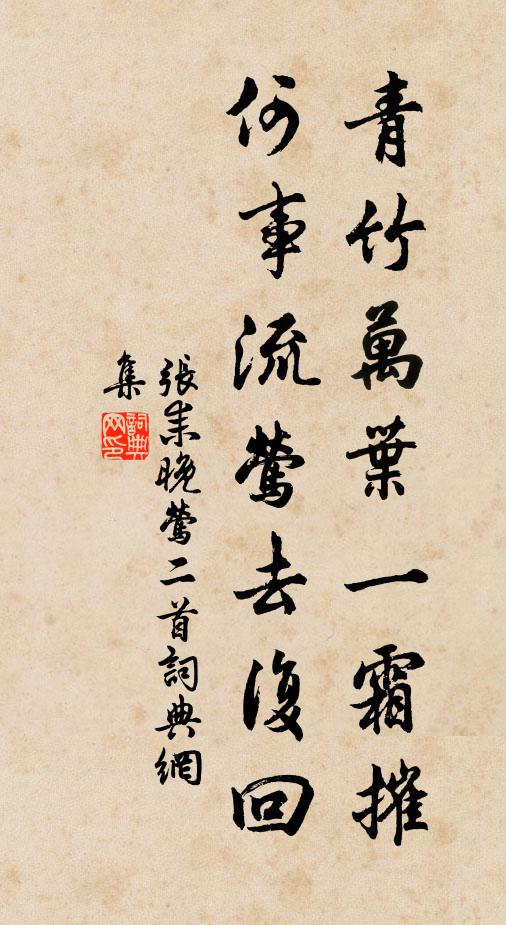 青竹萬葉一霜摧
何事流鶯去復回
張耒晚鶯二首詞典網
集
詞典
网印